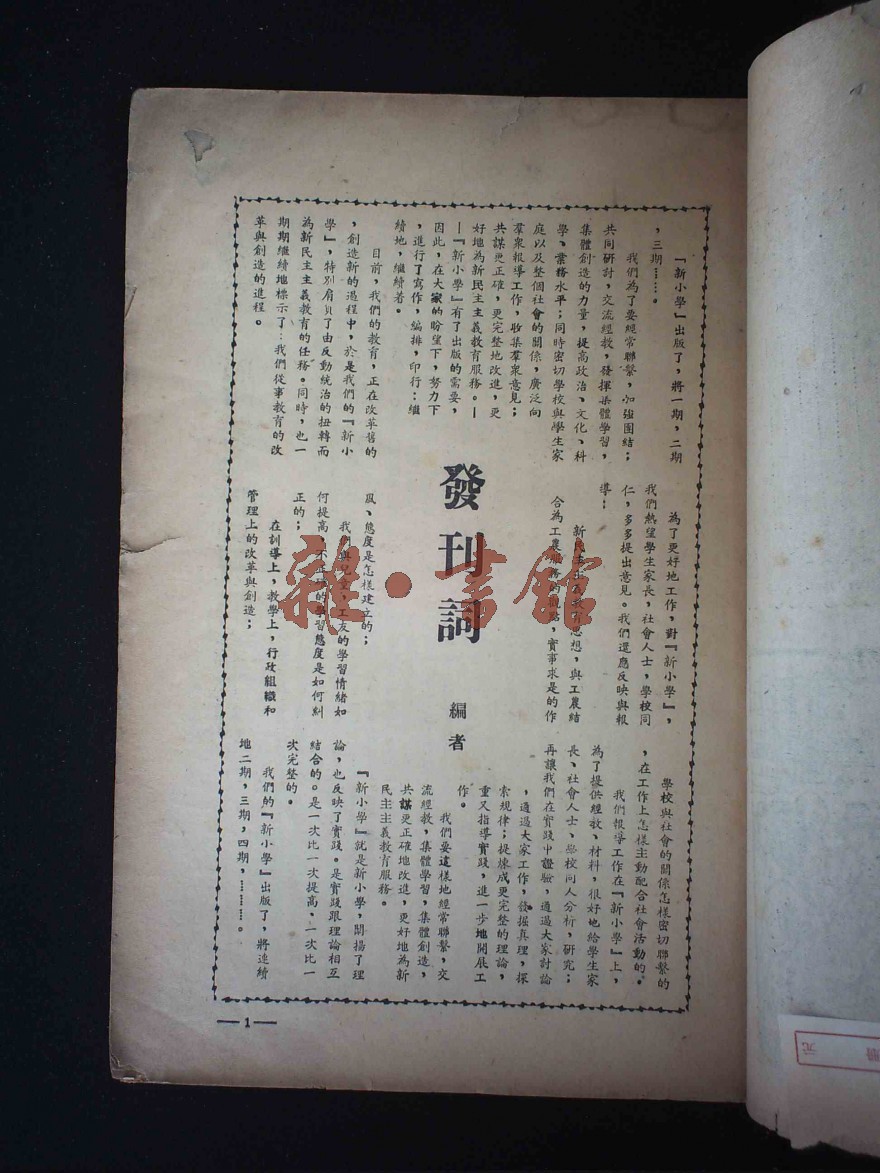 發刊詞
編者
『新小學』出版了，將一期，二期
，三期……。
我們為了要經常聯繫，加強團結；
共同研討，交流經教，發揮集體學習，
集體創造的力量，提高政治、文化、科
學、業務水平；同時密切學校與學生家
庭以及整個社會的關係，廣泛向
羣衆報導工作，收集羣衆意見；
共謀更正確，更完整地改進，更
好地為新民主主義教育服務。—
—『新小學』有了出版的需要，
因此，在大家的盼望下，努力下
，進行了寫作，編排，印行：繼
續地，繼續着。
目前，我們的教育，正在改革舊的
，創造新的過程中，於是我們的『新小
學』，特別肩負了由反動統治的扭轉而
為新民主主義教育的任務。同時，也一
期期繼續地標示了：我們從事教育的改
革與創造的進程。
為了更好地工作，對『新小學』，
我們熱望學生家長，社會人士，學校同
仁，多多提出意見。我們還應反映與報
導：
新民主主義教育思想，與工農結
合為工農服務的觀點，實事求是的作
風、態度是怎樣建立的；
我們與兒童，工友的學習情緒如
何提高，不正確的學習態度是如何糾
正的；
在訓導上，教學上，行政組織和
管理上的改革與創造；
學校與社會的關係怎樣密切聯繫的
，在工作上怎樣主動配合社會活動的。
我們報導工作在『新小學』上，
為了提供經教、材料，很好地給學生家
長、社會人士、學校同人分析，研究；
再讓我們在實踐中證驗，通過大家討論
，通過大家工作，發掘真理，探
索規律；提煉成更完整的理論，
重又指導實踐，進一步地開展工
作。
我們要這樣地經常聯繫，交
流經教，集體學習，集體創造，
共謀更正確地改進，更好地為新
民主主義教育服務。
『新小學』就是新小學，闡揚了理
論，也反映了實踐。是實踐跟理論相互
結合的。是一次比一次提高、一次比一
次完整的。
我們的『新小學』出版了，將連續
地二期，三期，四期，………。
—1—
雜·書館
元